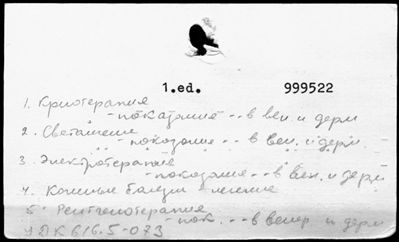 1.ed. 999522
1. Криотерапия
- показания -- в вен. и дерм
2. Светолечение
- показание -- в вен. и дерм.
3. Электротерапия
- показания -- в вен. и дерм
4. Кожные болезни - лечение
5. Рентгенотерапия
- пок. -- в венер и дерм
УДК 616.5-073